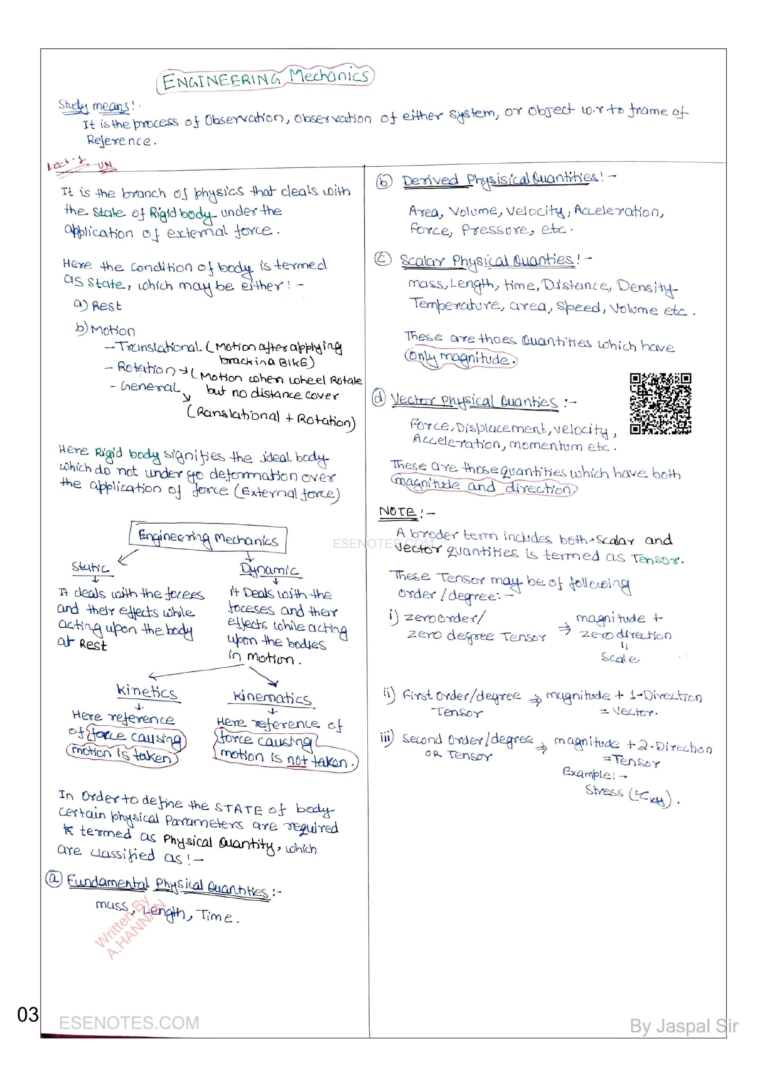 ENGINEERING Mechanics
Study means:-
It is the process of Observation, observation of either system, or object w.r to frame of
Reference.
Lect-1
It is the branch of physics that deals with
the State of Rigid body under the
application of external force.
Here the condition of body is termed
as State, which may be either:-
a) Rest
b) Motion
- Translational (Motion after applying
brack in a BIKE)
- Rotation → (Motion when wheel Rotate
but no distance cover
- General
(Ranslational + Rotation)
Here Rigid body signifies the ideal body
which do not under go deformation over
the application of force (External force)
Engineering Mechanics
Static
It deals with the forces
and their effects while
acting upon the body
at Rest
Dynamic
it Deals with the
foceses and their
effects while acting
upon the bodies
in motion.
Kinetics
Here reference
of force causing
motion is taken
Kinematics
Here reference of
force causing
motion is not taken.
In Order to define the STATE of body
certain physical Parameters are required
& termed as Physical Quantity, which
are classified as:-
(a) Fundamental Physical Quantities:-
mass, Length, Time.
Written By
A.HANNAN
(b) Derived Physisical Quantities:-
Area, Volume, Velocity, Acceleration,
Force, Pressure, etc.
(c) Scalar Physical Quanties:-
mass, Length, time, Distance, Density
Temperature, area, Speed, Volume etc.
These are thoes Quantities which have
only magnitude.
(d) Vector Physical Quanties:-
Force, Displacement, velocity,
Acceleration, momentum etc.
These are those quantities which have both
magnitude and direction
NOTE:-
A broder term includes both Scalar and
Vector quantities is termed as Tensor.
ESENOTES.COM
These Tensor may be of following
order/degree:-
i) zero order/
zero degree Tensor ⇒ magnitude +
zero direction
=
Scale.
ii) First order/degree
Tensor ⇒ magnitude + 1-Direction
= Vector.
iii) Second order/degree
OR Tensor ⇒ magnitude + 2-Direction
= Tensor
Example:-
Stress (τxy).
03
ESENOTES.COM
By Jaspal Sir